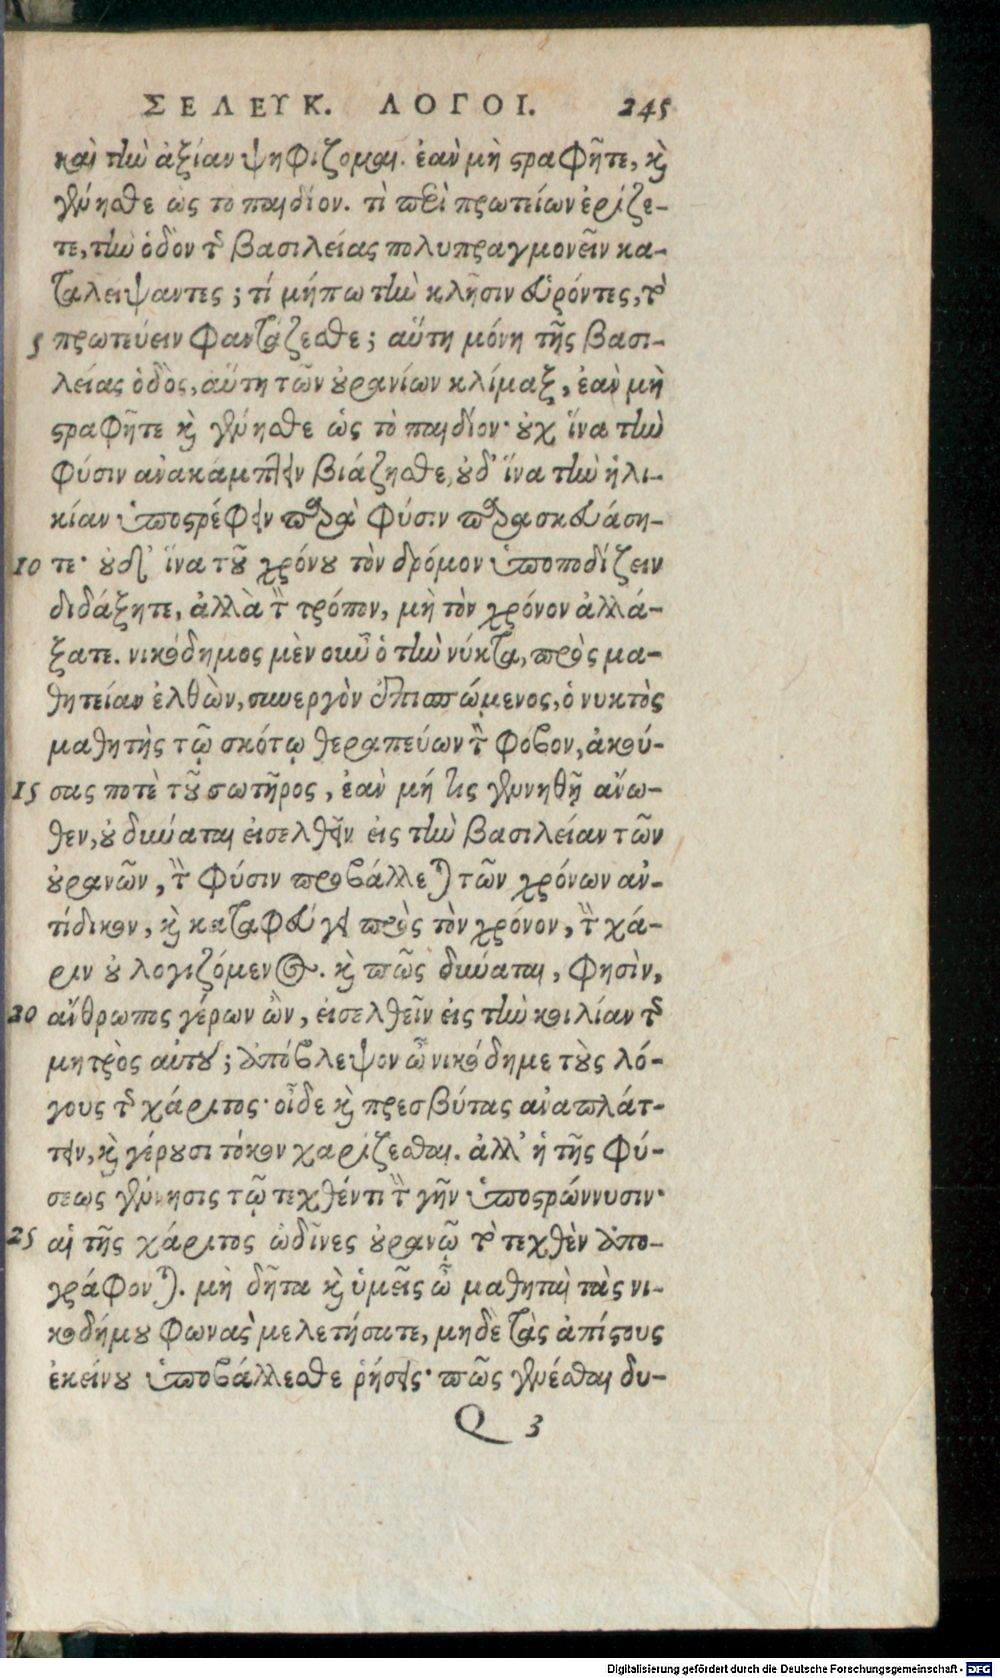 ΣΕΛΕΥΚ. ΛΟΓΟΙ. 245
καὶ τὴν ἀξίαν ψηφίζομαι. ἐὰν μὴ στραφῆτε, καὶ
γένησθε ὡς το παιδίον. τὶ περὶ πρωτείων ἐρίζε-
τε, τὴν ὁδὸν τῆς βασιλείας πολυπραγμονεῖν κα-
ταλείψαντες; τί μήπω τὴν κλῆσιν εὑρόντες, τὸ
5 πρωτεύειν φαντάζεσθε; αὕτη μόνη τῆς βασι-
λείας ὁδὸς, αὕτη τῶν οὐρανίων κλίμαξ, ἐὰν μὴ
στραφῆτε καὶ γένησθε ὡς τὸ παιδίον· οὐχ ἵνα τὴν
φύσιν ἀνακάμπτειν βιάζησθε, οὐδ' ἵνα τὴν ἡλι-
κίαν ὑποστρέφειν παρὰ φύσιν παρασκευάση-
10 τε· οὐδ' ἵνα τοῦ χρόνου τὸν δρόμον ὑποποδίζειν
διδάξητε, ἀλλὰ τὸν τρόπον, μὴ τὸν χρόνον ἀλλά-
ξατε. νικόδημος μὲν οὖν ὁ τὴν νύκτα, πρὸς μα-
θητείαν ἐλθὼν, συνεργὸν ἐπισπώμενος, ὁ νυκτὸς
μαθητὴς τῷ σκότῳ θεραπεύων τὸν φόβον, ἀκού-
15 σας ποτὲ τοῦ σωτῆρος, ἐὰν μή τις γεννηθῇ ἄνω-
θεν, οὐ δύναται εἰσελθεῖν εἰς τὴν βασιλείαν τῶν
οὐρανῶν, τὴν φύσιν προβάλλεται τῶν χρόνων ἀν-
τίδικον, καὶ καταφεύγει πρὸς τὸν χρόνον, τὴν χά-
ριν οὐ λογιζόμενος. καὶ πῶς δύναται, φησὶν,
20 ἄνθρωπος γέρων ὢν, εἰσελθεῖν εἰς τὴν κοιλίαν τῆς
μητρὸς αὐτοῦ; ἀπόβλεψον ὦ νικόδημε τοὺς λό-
γους τῆς χάριτος· οἶδε καὶ πρεσβύτας ἀναπλάτ-
τειν, καὶ γέρουσι τόκον χαρίζεσθαι. ἀλλ' ἡ τῆς φύ-
σεως γέννησις τῷ τεχθέντι τὴν γῆν ὑποστρώννυσιν·
25 αἱ τῆς χάριτος ὠδῖνες οὐρανῷ τὸ τεχθὲν ἀπο-
γράφονται. μὴ δῆτα καὶ ὑμεῖς ὦ μαθηταὶ τὰς νι-
κοδήμου φωνὰς μελετήσατε, μηδὲ τὰς ἀπίστους
ἐκείνου ὑποβάλλεσθε ῥήσεις· πῶς γενέσθαι δυ-
Q 3
Digitalisierung gefördert durch die Deutsche Forschungsgemeinschaft - DFG